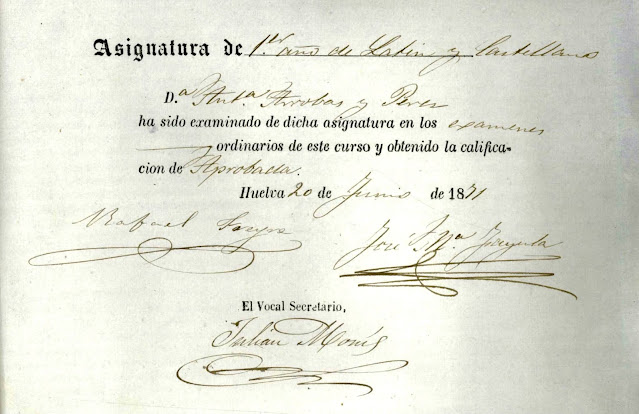 Asignatura de 1er. año de Latin y Castellano
D.ª Ant.ª Arrobas y Perez
ha sido examinado de dicha asignatura en los examenes
ordinarios de este curso y obtenido la califica-
cion de Aprobada.
Huelva 20 de Junio de 1871
Rafael
José M.ª
El Vocal Secretario,
Julian Monís